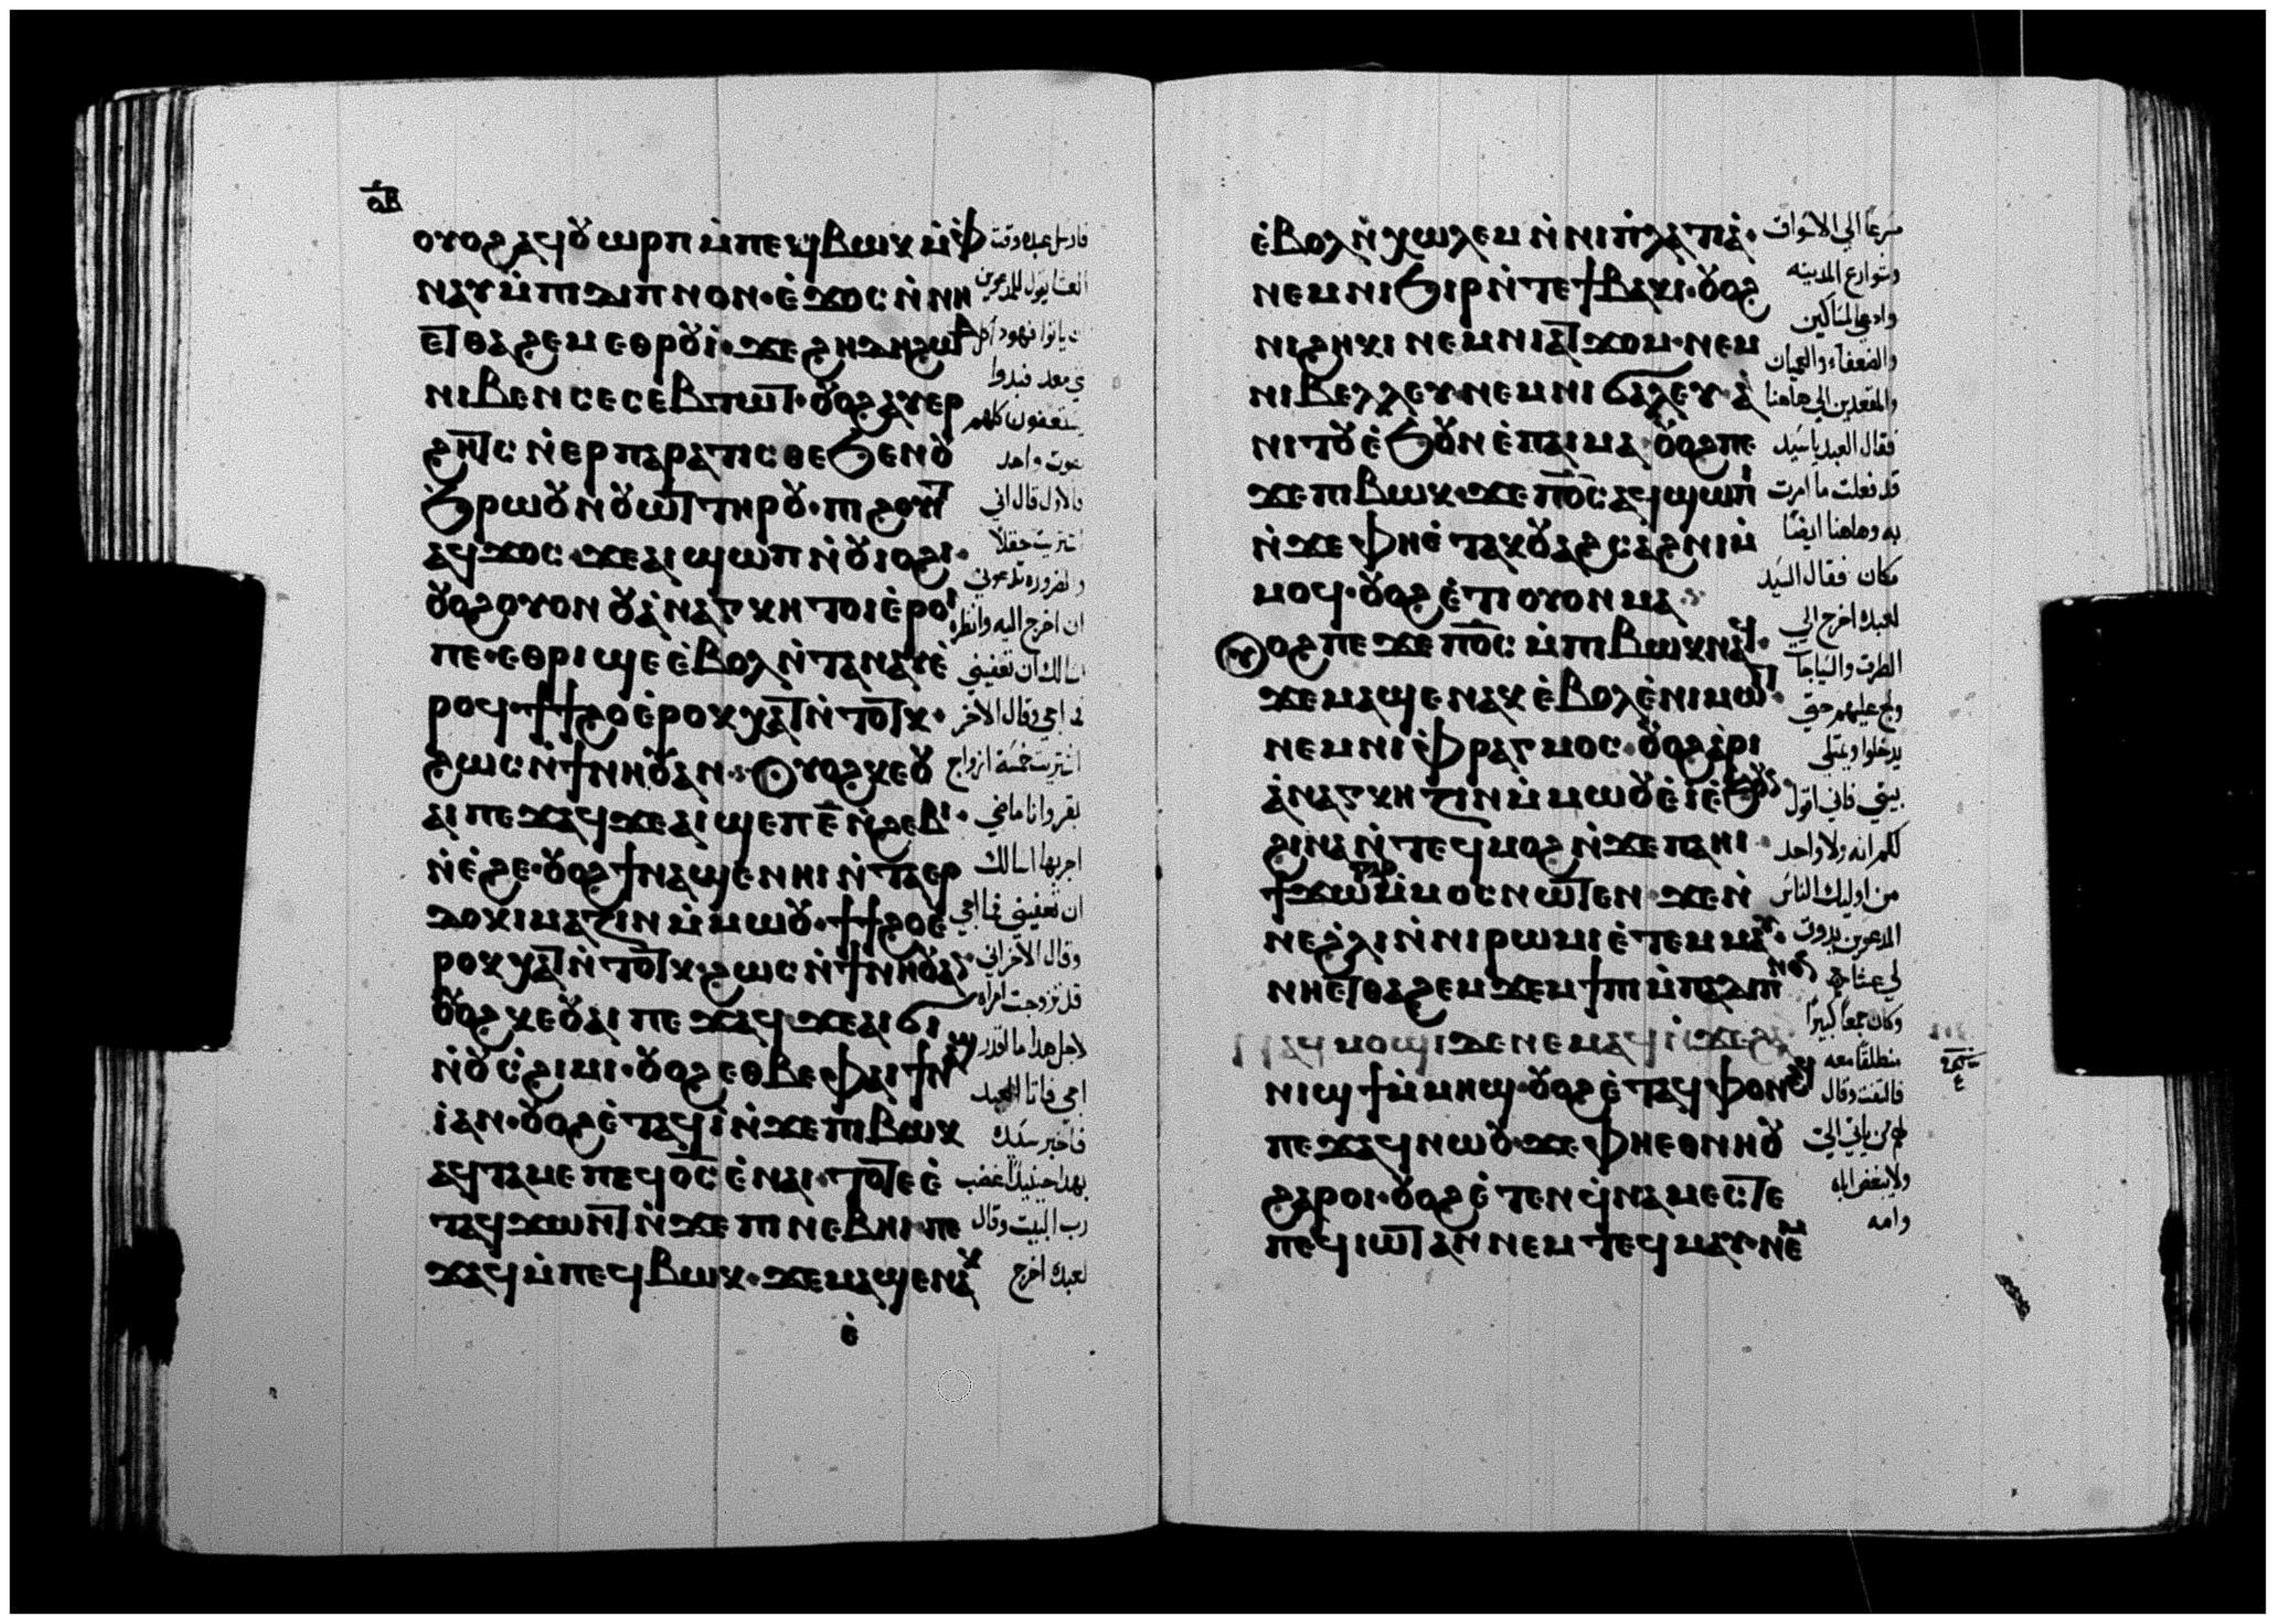 ⲟⲃ
ⲟⲩⲟϩ ⲁϥⲟⲩⲱⲣⲡ ⲙ̀ⲡⲉϥⲃⲱⲕ ⲙ̀ⲫ
ⲛⲁⲩ ⲙ̀ⲡⲓⲇⲓⲡⲛⲟⲛ · ⲉ̀ϫⲟⲥ ⲛ̀ⲛⲏ
ⲉⲧⲑⲁϩⲉⲙ ⲉⲑⲣⲟⲩⲓ̀ · ϫⲉ ϩⲏⲇⲏ ϩⲱⲃ
ⲛⲓⲃⲉⲛ ⲥⲉⲥⲉⲃⲧⲱⲧ · ⲟⲩⲟϩ ⲁⲩⲉⲣ
ϩⲏⲧⲥ ⲛ̀ⲉⲣⲡⲁⲣⲁⲧⲓⲥⲑⲉ ϧⲉⲛⲟⲩ
ϧⲣⲱⲟⲩ ⲛ̀ⲟⲩⲱⲧ ⲧⲏⲣⲟⲩ · ⲡⲓϩⲟⲩⲓⲧ
ⲁϥϫⲟⲥ · ϫⲉ ⲁⲓϣⲱⲡ ⲛ̀ⲟⲩⲓⲟϩⲓ ·
ⲟⲩⲟϩ ⲟⲩⲟⲛ ⲟⲩⲁ̀ⲛⲁⲅⲕⲏ ⲧⲟⲓ ⲉ̀ⲣⲟⲓ
ⲡⲉ · ⲉⲑⲣⲓϣⲉ ⲉ̀ⲃⲟⲗ ⲛ̀ⲧⲁⲛⲁⲩ ⲉ̀
ⲣⲟϥ · ϯϯϩⲟ ⲉ̀ⲣⲟⲕ ⲭⲁⲧ ⲛ̀ⲧⲟⲧⲕ ·
ϩⲱⲥ ⲛ̀ϯⲛⲏⲟⲩ ⲁⲛ · ⲟⲩⲟϩ ⲕⲉⲟⲩ
ⲁⲓ ⲡⲉϫⲁϥ ϫⲉ ⲁⲓϣⲉⲡ ⲉ̄ ⲛ̀ϩⲉⲃⲓ ·
ⲛ̀ⲉ̀ϩⲉ · ⲟⲩⲟϩ ϯⲛⲁϣⲉⲛⲏⲓ ⲛ̀ⲧⲁⲉⲣ
ⲇⲟⲕⲓⲙⲁⲍⲓⲛ ⲙ̀ⲙⲱⲟⲩ · ϯϯϩⲟ ⲉ̀
ⲣⲟⲕ ⲭⲁⲧ ⲛ̀ⲧⲟⲧⲕ · ϩⲱⲥ ⲛ̀ϯⲛⲏⲟⲩ ⲁⲛ
ⲟⲩⲟϩ ⲕⲉⲟⲩⲁⲓ ⲡⲉϫⲁϥ ϫⲉ ⲁⲓϭⲓ
ⲛ̀ⲟⲩⲥ̀ϩⲓⲙⲓ · ⲟⲩⲟϩ ⲉⲑⲃⲉ ⲫⲁⲓ ϯⲛⲏⲟⲩ
ⲓ̀ ⲁⲛ · ⲟⲩⲟϩ ⲉ̀ⲧⲁϥⲓ̀ ⲛ̀ϫⲉ ⲡⲓⲃⲱⲕ
ⲁϥⲧⲁⲙⲉ ⲡⲉϥⲟ̅ⲥ̅ ⲉ̀ⲛⲁⲓ · ⲧⲟⲧⲉ ⲉ̀
ⲧⲁϥϫⲱⲛⲧ ⲛ̀ϫⲉ ⲡⲓⲛⲉⲃⲏⲓ · ⲡⲉ
ϫⲁϥ ⲙ̀ⲡⲉϥⲃⲱⲕ · ϫⲉ ⲙⲁϣⲉⲛⲁⲕ
ⲉ̀
فارسل عبده وقت
العشا يقول للمدعوين
ان ياتوا فهوذا كل
شي معد فبدوا
يستعفون كلهم
بصوت واحد
فالاول قال اني
اشتريت حقلا
والضروره تدعوني
ان اخرج اليه وانظره
اسالك ان تعفيني
فما اجي وقال الاخر
اشتريت خمسة ازواج
بقر وانا ماضي
اجربها اسالك
ان تعفيني فما اجي
وقال الاخر اني
قد تزوجت امراه
لاجل هدا ما اقدر
اجي فاتا العبد
فاخبر سيده
بهدا حينيذ غضب
رب البيت وقال
لعبده اخرج
ⲉ̀ⲃⲟⲗ ⲛ̀ⲭⲱⲗⲉⲙ ⲛ̀ⲛⲓⲡⲗⲁⲧⲓⲁ̀ ·
ⲛⲉⲙ ⲛⲓϧⲓⲣ ⲛ̀ⲧⲉ ϯⲃⲁⲕⲓ · ⲟⲩⲟϩ
ⲛⲓϩⲏⲕⲓ ⲛⲉⲙ ⲛⲓⲁⲧϫⲟⲙ · ⲛⲉⲙ
ⲛⲓⲃⲉⲗⲗⲉⲩ ⲛⲉⲙ ⲛⲓϭⲁⲗⲉⲩ ⲁ̀
ⲛⲓⲧⲟⲩ ⲉ̀ϧⲟⲩⲛ ⲉ̀ⲡⲁⲓⲙⲁ · ⲟⲩⲟϩ ⲡⲉ
ϫⲉ ⲡⲓⲃⲱⲕ · ϫⲉ ⲡ̅ⲟ̅ⲥ̅ ⲁϥϣⲱⲡⲓ
ⲛ̀ϫⲉ ⲫⲏⲉ̀ⲧⲁⲕⲟⲩⲁϩⲥⲁϩⲛⲓ ⲙ̀
ⲙⲟϥ · ⲟⲩⲟϩ ⲉ̀ⲧⲓ ⲟⲩⲟⲛ ⲙⲁ
ⲟⲩⲟϩ ⲡⲉϫⲉ ⲡ̅ⲟ̅ⲥ̅ ⲙ̀ⲡⲓⲃⲱⲕ ⲛⲁϥ ·
ϫⲉ ⲙⲁϣⲉⲛⲁⲕ ⲉ̀ⲃⲟⲗ ⲉ̀ⲛⲓⲙⲱⲓⲧ ·
ⲛⲉⲙ ⲛⲓⲫⲣⲁⲅⲙⲟⲥ · ⲟⲩⲟϩ ⲁ̀ⲣⲓ
ⲁ̀ⲛⲁⲅⲕⲏⲍⲓⲛ ⲙ̀ⲙⲱⲟⲩ ⲉ̀ⲓ̀ ⲉ̀ϧⲟⲩⲛ
ϩⲓⲛⲁ ⲛ̀ⲧⲉϥⲙⲟϩ ⲛ̀ϫⲉ ⲡⲁⲏⲓ ·
ϯϫⲱ ⲅⲁⲣ ⲙ̀ⲙⲟⲥ ⲛⲱⲧⲉⲛ · ϫⲉ ⲛ̀
ⲛⲉϩ̀ⲗⲓ ⲛ̀ⲛⲓⲣⲱⲙⲓ ⲉ̀ⲧⲉⲙⲙⲁⲩ ·
ⲛⲏⲉⲧⲑⲁϩⲉⲙ ϫⲉⲙϯⲡⲓ ⲙ̀ⲡⲁⲇⲓⲡⲛⲟⲛ
ⲛⲓϣϯ ⲙ̀ⲙⲏϣ · ⲟⲩⲟϩ ⲉ̀ⲧⲁϥⲫⲟⲛϩϥ
ⲡⲉϫⲁϥ ⲛⲱⲟⲩ · ϫⲉ ⲫⲏⲉⲑⲛⲏⲟⲩ
ϩⲁⲣⲟⲓ · ⲟⲩⲟϩ ⲉ̀ⲧⲉⲛϥ̀ⲛⲁⲙⲉⲥⲧⲉ
ⲡⲉϥⲓⲱⲧ ⲁⲛ ⲛⲉⲙ ⲧⲉϥⲙⲁⲩ · ⲛⲉⲙ
مسرعا الي الاسواق
وشوارع المدينه
وادعي المساكين
والضعفاء والعميان
والمقعدين الي هاهنا
فقال العبد ياسيد
قد فعلت ما امرت
به وهاهنا ايضا
مكان فقال السيد
لعبده اخرج الي
الطرق والسياجات
ولج عليهم حتي
يدخلوا ويمتلي
بيتي فاني اقول
لكم انه ولا واحد
من اوليك الناس
المدعوين يذوق
لي عشا
وكان جمعا كبيرا
منطلقا معه
فالتفت وقال
لهم من ياتي الي
ولا يبغض اباه
وامه